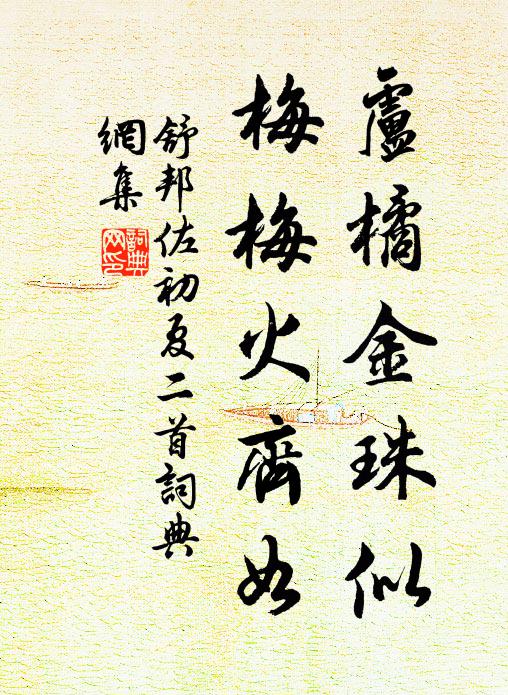 盧橘金珠似
梅梅火齊如
舒邦佐初夏二首詞典
網集
詞典网印